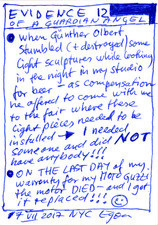 EVIDENCE 12
OF A GUARDIAN ANGEL
• When Günther Olbert
stumbled (+ destroyed) some
light sculptures while looking
in the night in my studio
for beer – as compensation
he offered to come with me
to the fair where these
light pieces needed to be
installed → I needed
someone and did NOT
have anybody!!!
• ON THE LAST DAY of my
warranty for my MOTO GUZZI
the motor DIED – and I got
it replaced!!!
17 VII 2017 NYC